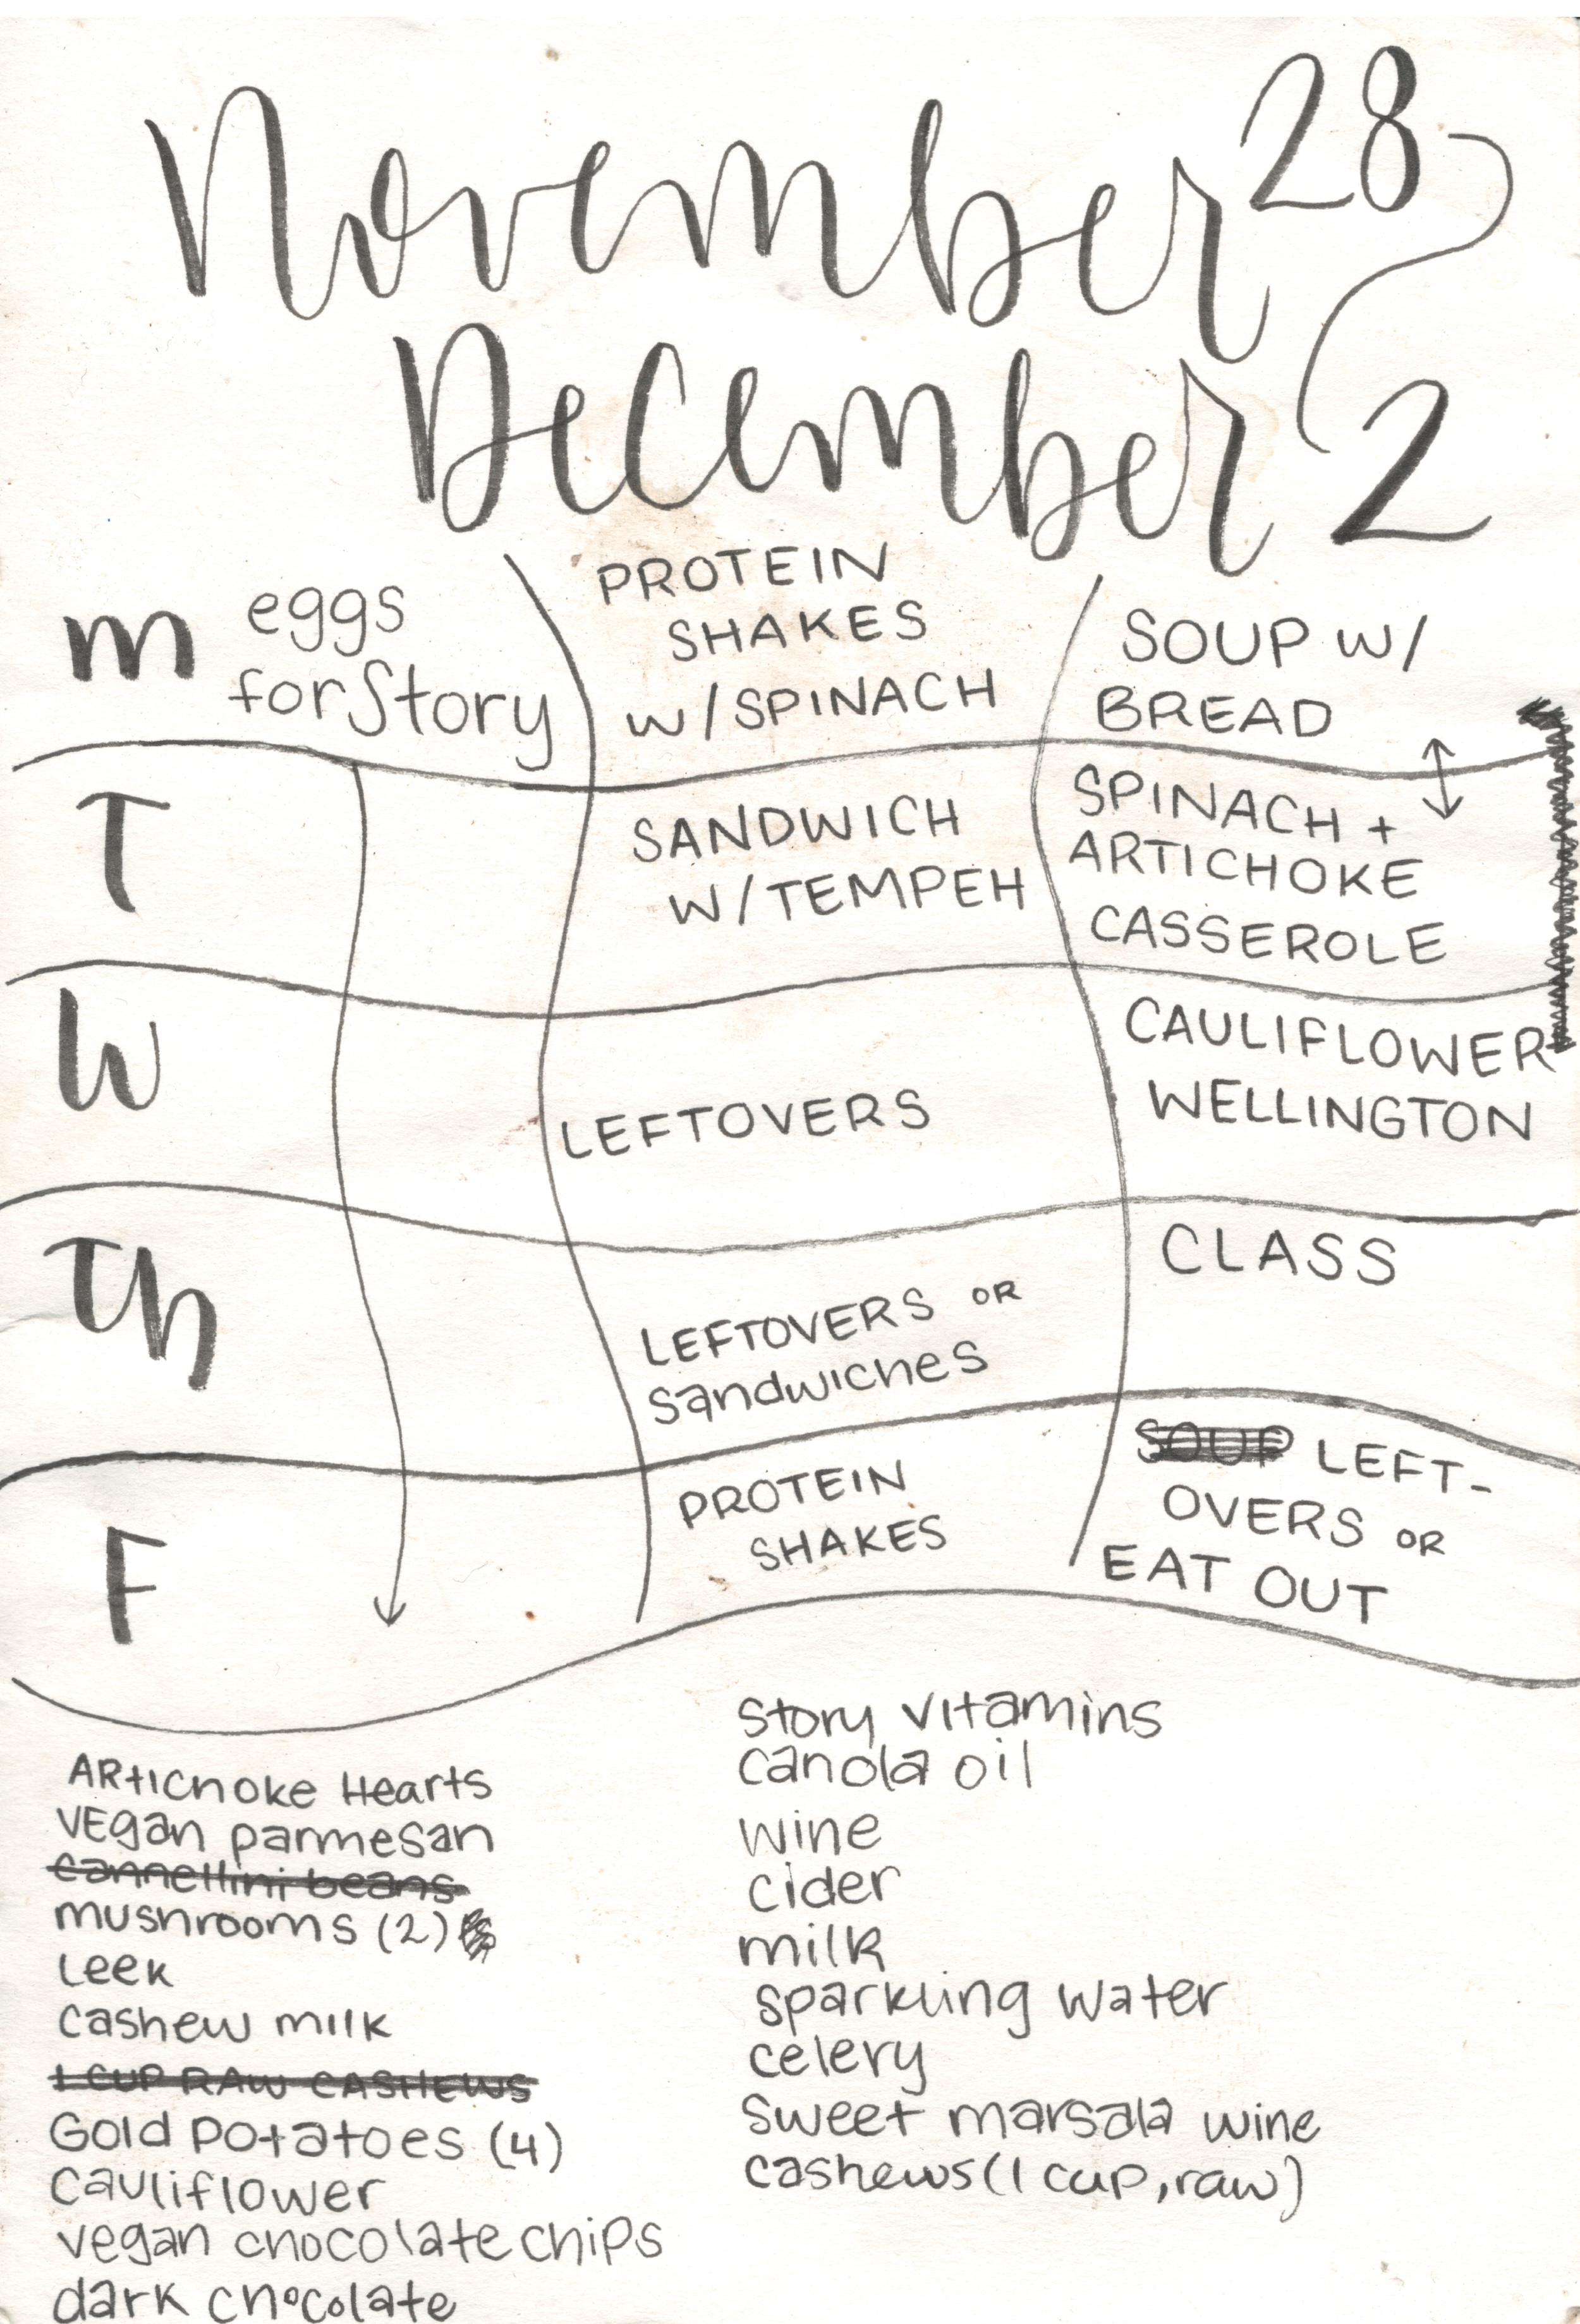 November 28
December 2
m eggs
for Story
PROTEIN
SHAKES
W/SPINACH
SOUP W/
BREAD
T
SANDWICH
W/TEMPEH
SPINACH +
ARTICHOKE
CASSEROLE
W
LEFTOVERS
CAULIFLOWER
WELLINGTON
Th
LEFTOVERS OR
sandwiches
CLASS
F
PROTEIN
SHAKES
SOUP LEFT-
OVERS OR
EAT OUT
ARtichoke Hearts
VEgan parmesan
cannellini beans
mushrooms (2)
Leek
cashew milk
1 CUP RAW CASHEWS
Gold potatoes (4)
Cauliflower
vegan chocolate chips
dark chocolate
Story vitamins
canola oil
wine
cider
milk
sparkling water
celery
sweet marsala wine
cashews (1 cup, raw)